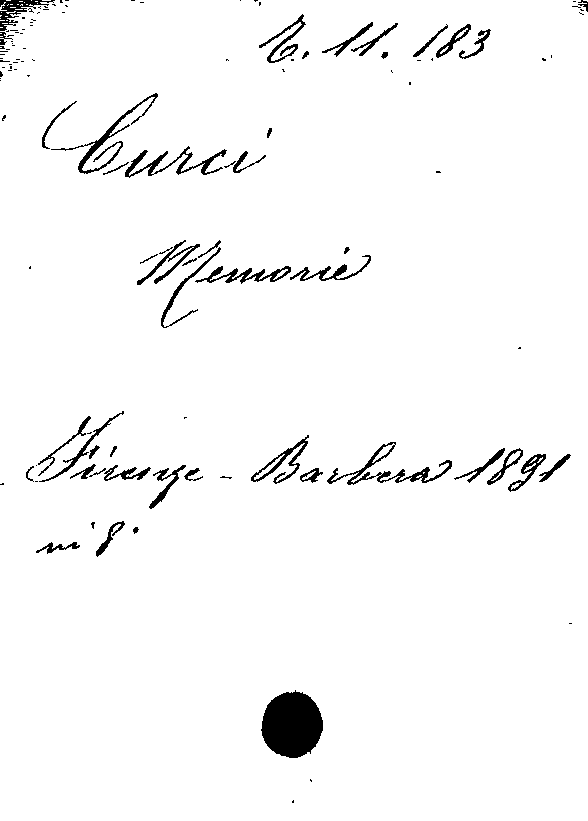 Z. 11. 183
Curci
Memorie
Firenze - Barbera 1891
in 8°